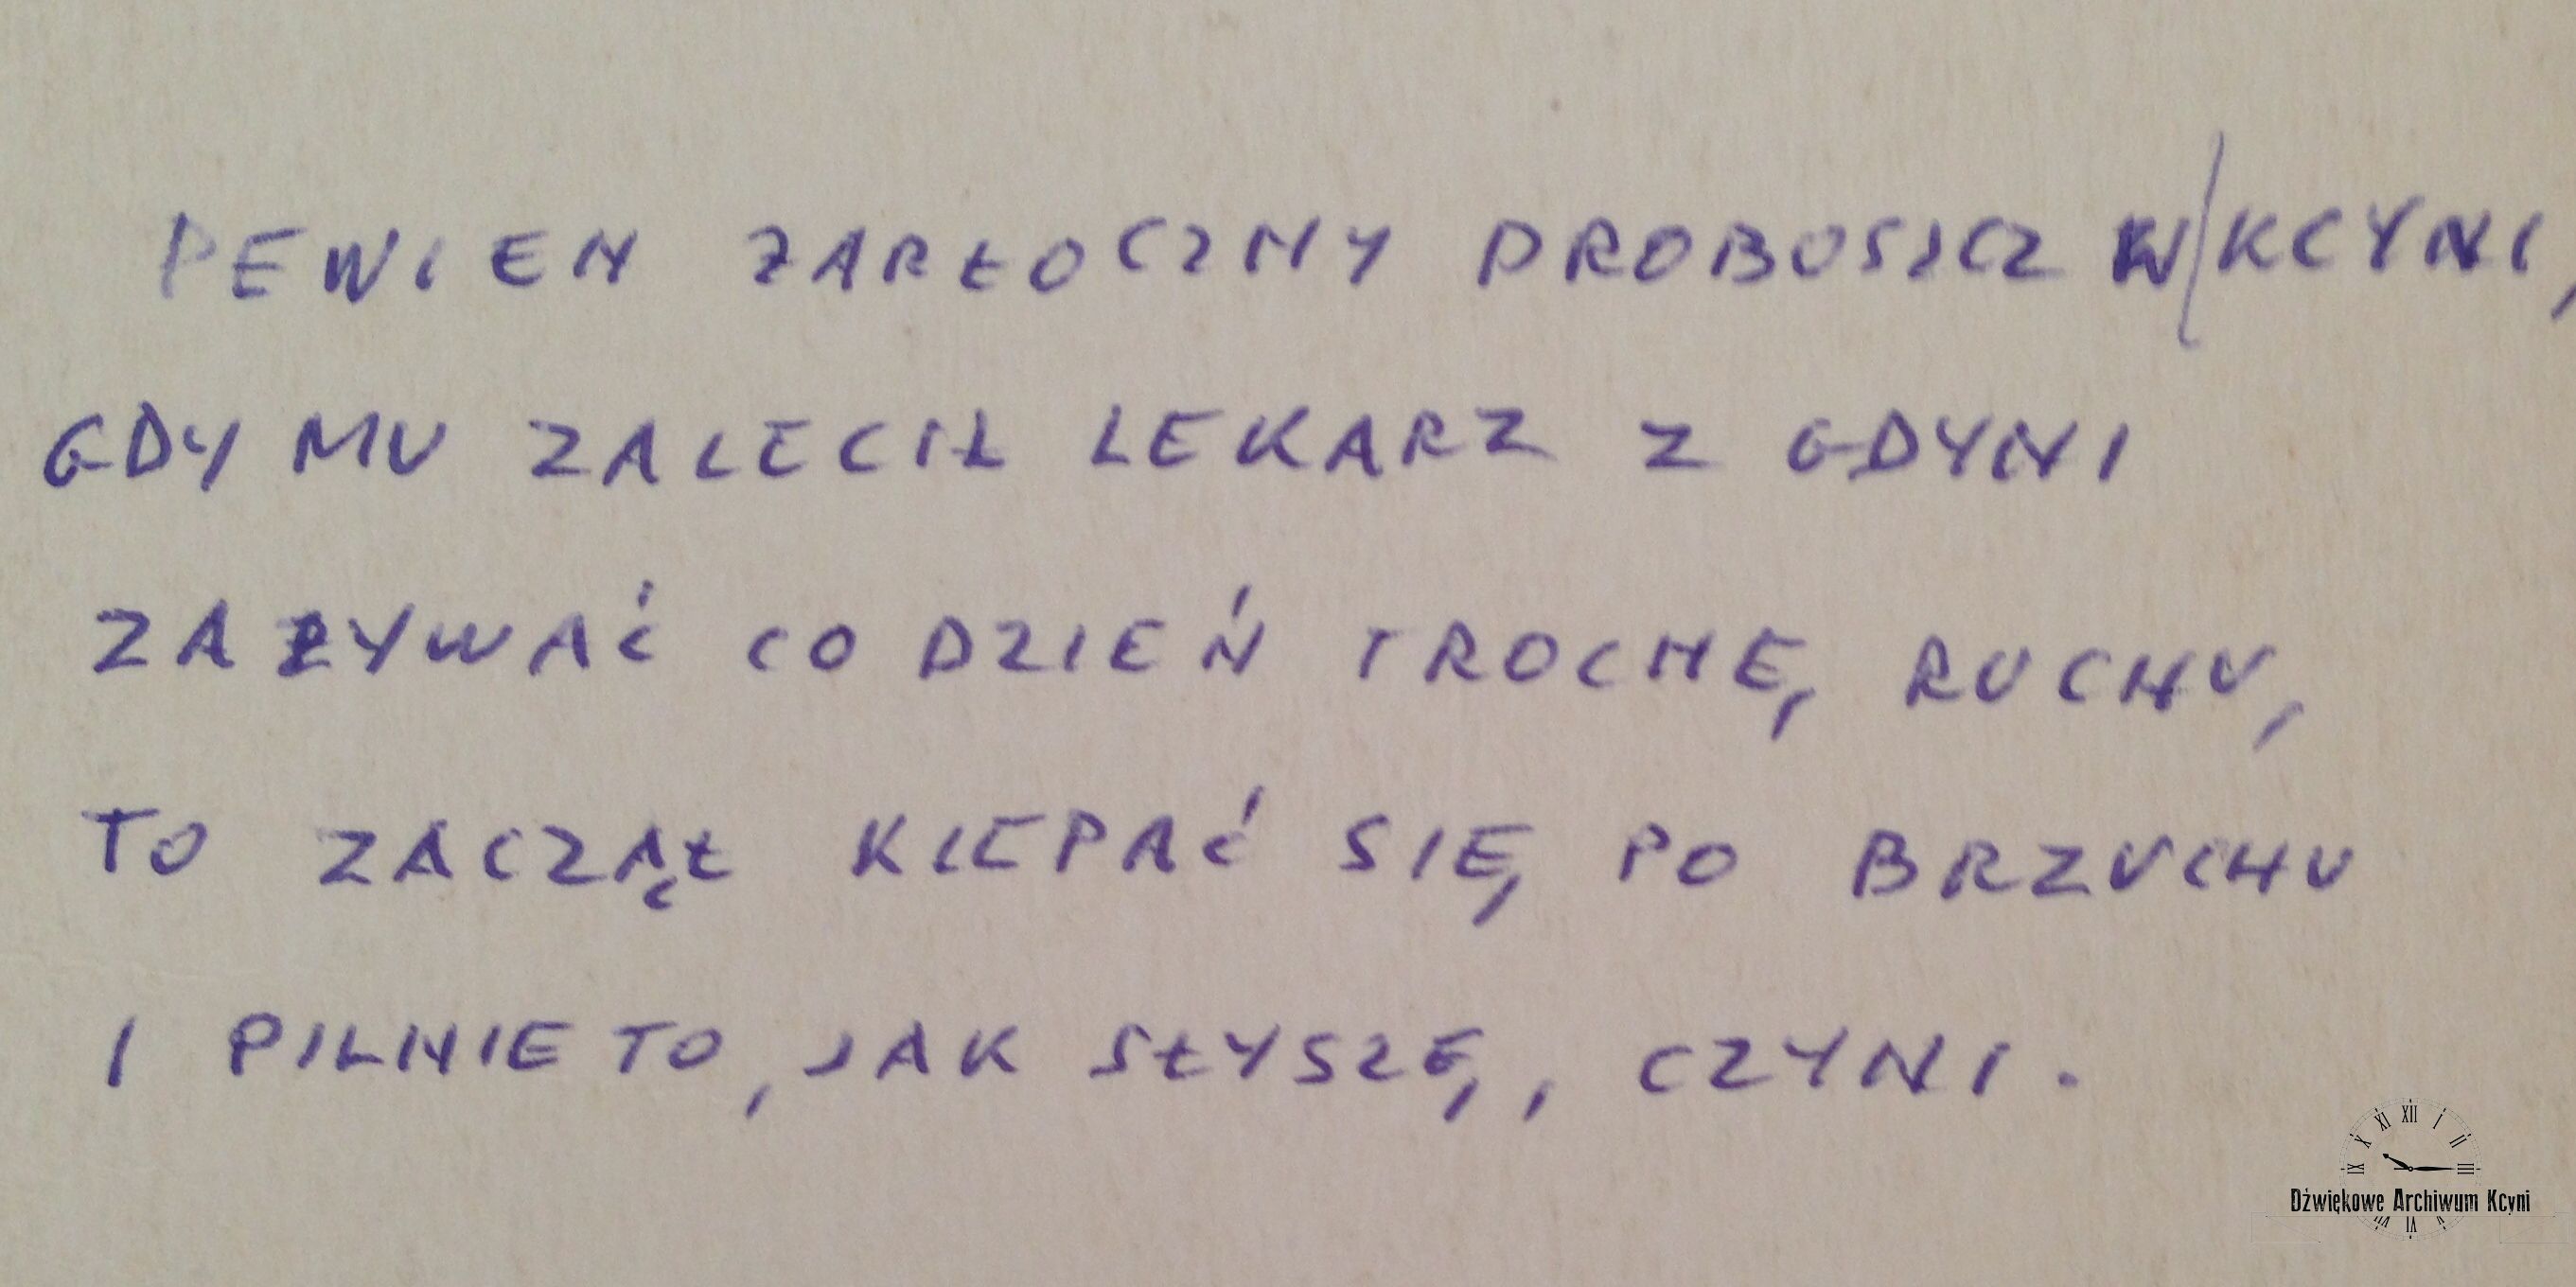 PEWIEN ŻARŁOCZNY PROBOSZCZ W/KCYNI,
GDY MU ZALECIŁ LEKARZ Z GDYNI
ZAŻYWAĆ CO DZIEŃ TROCHĘ RUCHU,
TO ZACZĄŁ KLEPAĆ SIĘ PO BRZUCHU
I PILNIE TO, JAK SŁYSZĘ, CZYNI.
IX X XI XII I II III
Dźwiękowe Archiwum Kcyni
VII VI V